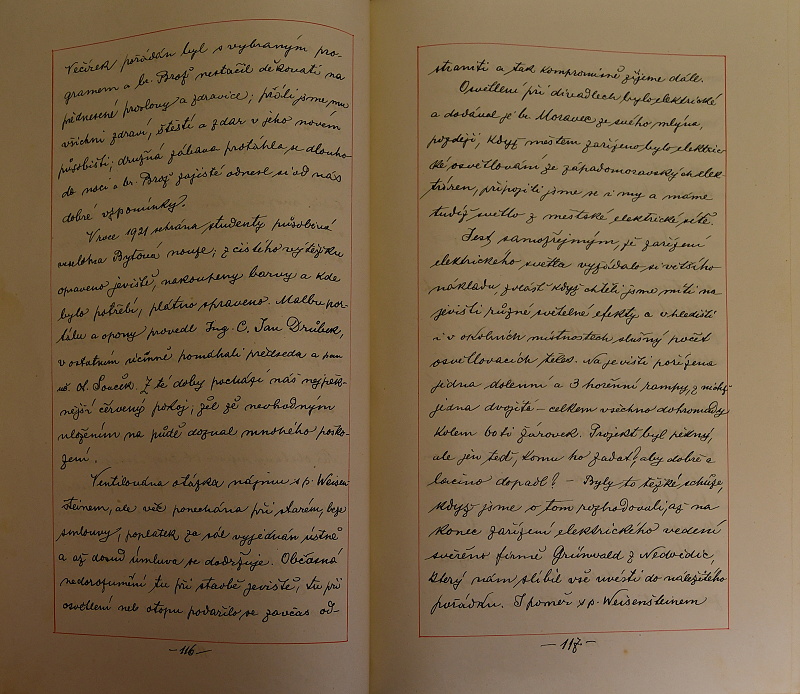 Večírek pořádán byl s vybraným pro-
gramem a br. Brož nestačil děkovati na
přednesené proslovy a zdravice; přáli jsme mu
všichni zdraví, štěstí a zdar v jeho novém
působišti; družná zábava protáhla se dlouho
do noci a br. Brož zajisté odnesl si od nás
dobré vzpomínky.
V roce 1921 sehrána studenty působivá
veselohra Bytová nouze; z čistého výtěžku
opraveno jeviště, nakoupeny barvy a kde
bylo potřebí, plátno spraveno. Malbu por-
tálu a opony provedl Ing. C. Jan Drůbek,
v ostatním účinně pomáhali předseda a pan
uč. A. Souček. Z té doby pochází náš nejpěk-
nější červený pokoj; žel že nevhodným
uložením na půdě doznal mnohého poško-
zení.
Ventilována otázka nájmu s p. Weisen-
steinem, ale vše ponechána při starém, beze
smlouvy, poplatek za sál vyjednán ústně
a až dosud úmluva se dodržuje. Občasná
nedorozumění tu při stavbě jeviště, tu při
osvětlení neb otopu podařilo se zavčas od-
– 116 –
straniti a tak kompromisně žijeme dále.
Osvětlení při divadlech bylo elektrické
a dodával je br. Moravec ze svého mlýna,
později, když městem zařízeno bylo elektric-
ké osvětlování ze západomoravských elek-
tráren, připojili jsme se i my a máme
tudíž světlo z městské elektrické sítě.
Jest samozřejmým, že zařízení
elektrického světla vyžádalo si většího
nákladu, zvlášť když chtěli jsme míti na
jevišti různé světelné efekty a v hledišti
i v okolních místnostech slušný počet
osvětlovacích těles. Na jevišti pořízena
jedna dolenní a 3 hořenní rampy, z nichž
jedna dvojitá – celkem všechno dohromady
kolem 60 ti žárovek. Projekt byl pěkný,
ale jen teď, komu ho zadat? aby dobře a
lacino dopadl? – Byly to těžké schůze,
když jsme o tom rozhodovali, až na
konec zařízení elektrického vedení
svěřeno firmě Grünwald z Nedvědic,
který nám slíbil vše uvésti do náležitého
pořádku. I poměr s p. Weisensteinem
– 117 –